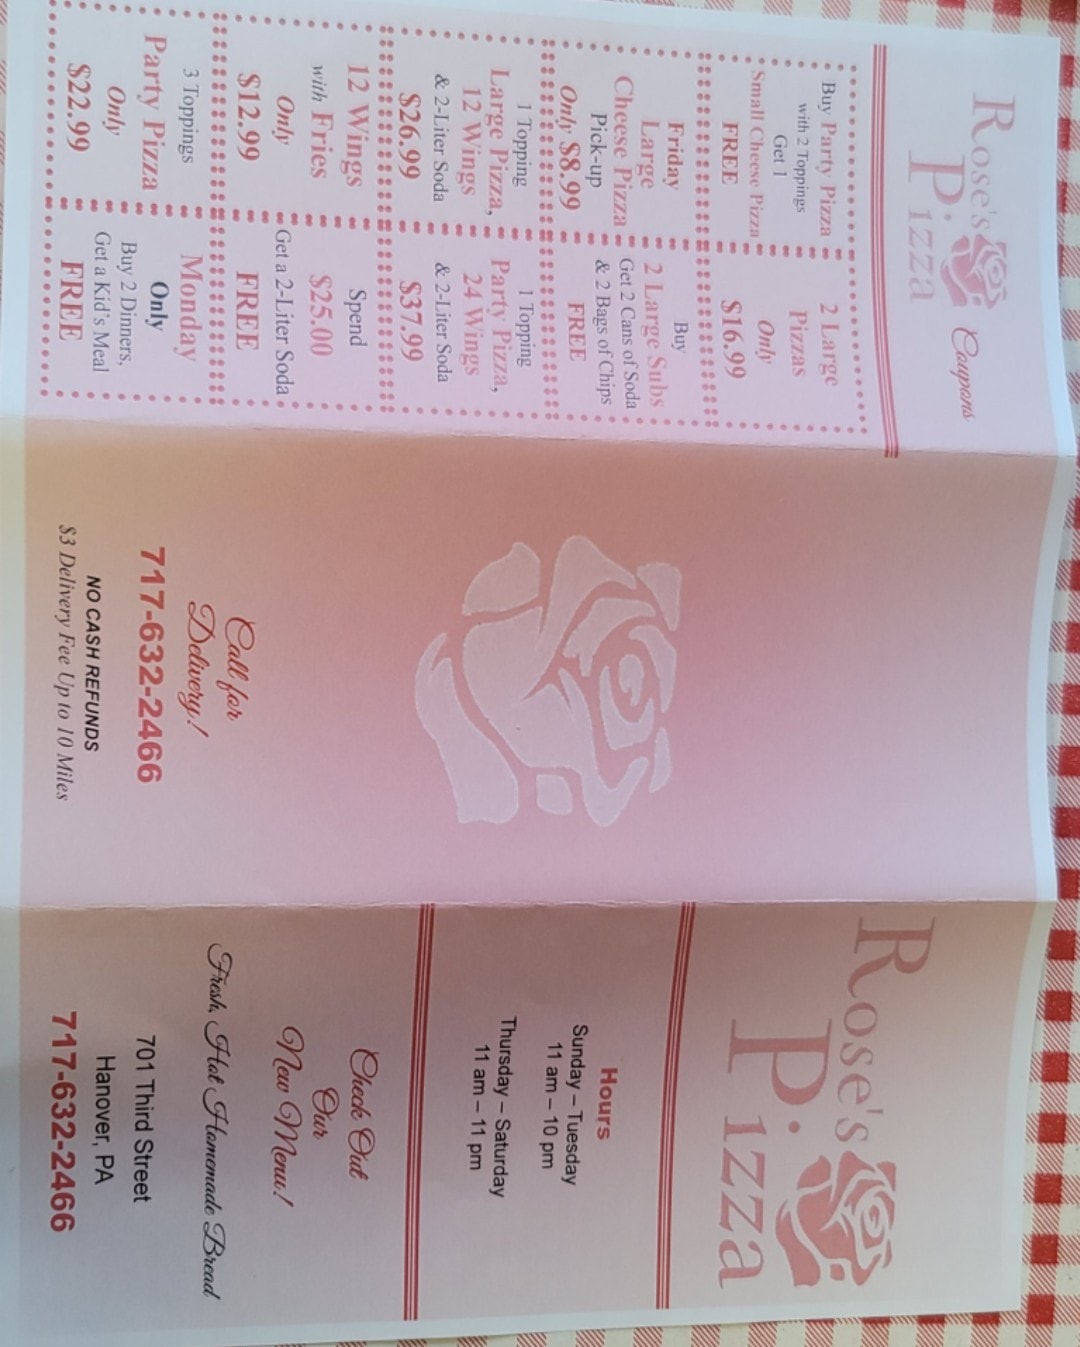 Rose's
Pizza
Coupons
Buy Party Pizza
with 2 Toppings
Get 1
Small Cheese Pizza
FREE
2 Large
Pizzas
Only
$16.99
Friday
Large
Cheese Pizza
Pick-up
Only $8.99
Buy
2 Large Subs
Get 2 Cans of Soda
& 2 Bags of Chips
FREE
1 Topping
Large Pizza,
12 Wings
& 2-Liter Soda
$26.99
1 Topping
Party Pizza,
24 Wings
& 2-Liter Soda
$37.99
12 Wings
with Fries
Only
$12.99
Spend
$25.00
Get a 2-Liter Soda
FREE
3 Toppings
Party Pizza
Only
$22.99
Monday
Only
Buy 2 Dinners,
Get a Kid's Meal
FREE
Call for
Delivery!
717-632-2466
NO CASH REFUNDS
$3 Delivery Fee Up to 10 Miles
Rose's
Pizza
Hours
Sunday – Tuesday
11 am – 10 pm
Thursday – Saturday
11 am – 11 pm
Check Out
Our
New Menu!
Fresh, Hot Homemade Bread
701 Third Street
Hanover, PA
717-632-2466